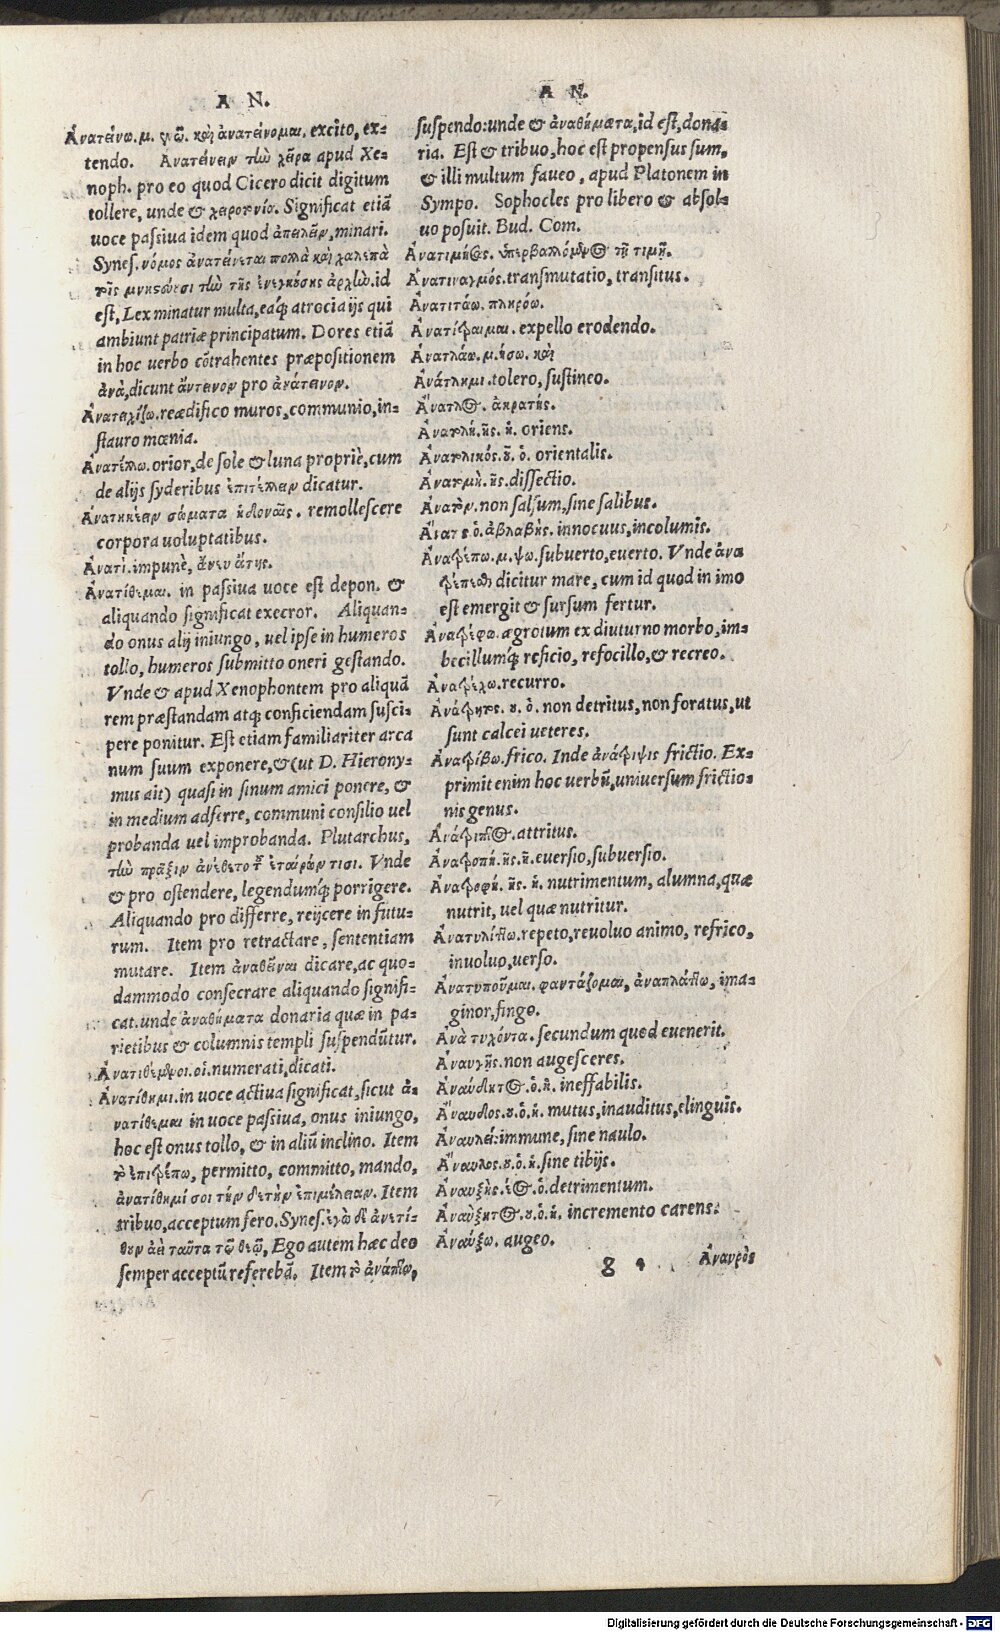 A N.
Ἀνατείνω. μ. νῶ. καὶ ἀνατείνομαι, excito, ex-
tendo. Ἀνατείνειν τὼ χεῖρα apud Xe-
noph. pro eo quod Cicero dicit digitum
tollere, unde & χειρονομία. Significat etiã
uoce paſsiua idem quod ἀπειλεῖν, minari.
Syneſ. νόμος ἀνατείνεται πολλὰ καὶ χαλεπὰ
τοῖς μνηστεύουσι τὼ τῆς ἐνεγκούσης ἀρχὼ. id
eſt, Lex minatur multa, eaq́; atrocia ijs qui
ambiunt patriæ principatum. Dores etiã
in hoc uerbo cõtrahentes præpoſitionem
ἀνὰ, dicunt ἄντεινον pro ἀνάτεινον.
Ἀνατειχίζω. reædifico muros, communio, in-
ſtauro mœnia.
Ἀνατέλλω. orior, de ſole & luna propriè, cum
de alijs ſyderibus ἐπιτέλλειν dicatur.
Ἀνατήκειν σώματα ἡδοναῖς. remolleſcere
corpora uoluptatibus.
Ἀνατὶ. impunè, ἄνευ ἄτης.
Ἀνατίθεμαι. in paſsiua uoce eſt depon. &
aliquando ſignificat execror. Aliquan-
do onus alij iniungo, uel ipſe in humeros
tollo, humeros ſubmitto oneri geſtando.
Vnde & apud Xenophontem pro aliquã
rem præſtandam atq; conficiendam ſuſci-
pere ponitur. Eſt etiam familiariter arca
num ſuum exponere, & (ut D. Hierony-
mus ait) quaſi in ſinum amici ponere, &
in medium adferre, communi conſilio uel
probanda uel improbanda. Plutarchus,
τὼ πρᾶξιν ἀνέθετο τῶν ἑταίρων τισι. Vnde
& pro oſtendere, legendumq́; porrigere.
Aliquando pro differre, reijcere in futu-
rum. Item pro retractare, ſententiam
mutare. Item ἀναθεῖναι dicare, ac quo-
dammodo conſecrare aliquando ſignifi-
cat. unde ἀναθήματα donaria quæ in pa-
rietibus & columnis templi ſuſpendũtur.
Ἀνατιθέμενοι. οἱ. numerati, dicati.
Ἀνατίθημι. in uoce actiua ſignificat, ſicut ἀ-
νατίθεμαι in uoce paſsiua, onus iniungo,
hoc eſt onus tollo, & in aliũ inclino. Item
τὸ ἐπιτρέπω, permitto, committo, mando,
ἀνατίθημί σοι τήν δε τὴν ἐπιμέλειαν. Item
tribuo, acceptum fero. Syneſ. ἐγὼ δὲ ἀνετί-
θουν ἀεὶ ταῦτα τῷ θεῷ, Ego autem hæc deo
ſemper acceptũ referebã. Item τὸ ἀνάπτω,
A N.
ſuſpendo: unde & ἀναθήματα, id eſt, dona-
ria. Eſt & tribuo, hoc eſt propenſus ſum,
& illi multum faueo, apud Platonem in
Sympo. Sophocles pro libero & abſol-
uo poſuit. Bud. Com.
Ἀνατιμήσας. ὑπερβαλλόμενος τῇ τιμῇ.
Ἀνατιναγμός. tranſmutatio, tranſitus.
Ἀνατιτάω. πληρόω.
Ἀνατίτραιμαι. expello erodendo.
Ἀνατλάω. μ. ήσω. καὶ
Ἀνάτλημι. tolero, ſuſtineo.
Ἄνατλος. ἀκρατής.
Ἀνατολὴ. ῆς. ἡ. oriens.
Ἀνατολικός. οῦ. ὁ. orientalis.
Ἀνατομὴ. ῆς. diſſectio.
Ἀνατον. non ſalſum, ſine ſalibus.
Ἄνατος. ὁ. ἀβλαβὴς. innocuus, incolumis.
Ἀνατρέπω. μ. ψω. ſubuerto, euerto. Vnde ἀνα
τρέπεσθαι dicitur mare, cum id quod in imo
eſt emergit & ſursum fertur.
Ἀνατρέφω. ægrotum ex diuturno morbo, im-
becillumq́; reficio, refocillo, & recreo.
Ἀνατρέχω. recurro.
Ἀνάτρητος. ου. ὁ. non detritus, non foratus, ut
ſunt calcei ueteres.
Ἀνατρίβω. frico. Inde ἀνάτριψις frictio. Ex-
primit enim hoc uerbũ, uniuerſum frictio-
nis genus.
Ἀνάτριπτος. attritus.
Ἀνατροπὴ. ῆς. ἡ. euerſio, ſubuerſio.
Ἀνατροφὴ. ῆς. ἡ. nutrimentum, alumna, quæ
nutrit, uel quæ nutritur.
Ἀνατυλίττω. repeto, reuoluo animo, refrico,
inuoluo, uerſo.
Ἀνατυποῦμαι. φαντάζομαι, ἀναπλάττω, ima-
ginor, fingo.
Ἀνὰ τυχόντα. ſecundum quod euenerit.
Ἀναυγῆς. non augeſceres.
Ἀναύδητος. ὁ. ἡ. ineffabilis.
Ἄναυδος. ου. ὁ. ἡ. mutus, inauditus, elinguis.
Ἀναυλεί: immune, ſine naulo.
Ἄναυλος. ου. ὁ. ἡ. ſine tibijs.
Ἀναυξὴς. έος. ὁ. detrimentum.
Ἀναύξητος. ου. ὁ. ἡ. incremento carens.
Ἀναύξω. augeo.
8 4 Ἀναυρὸς